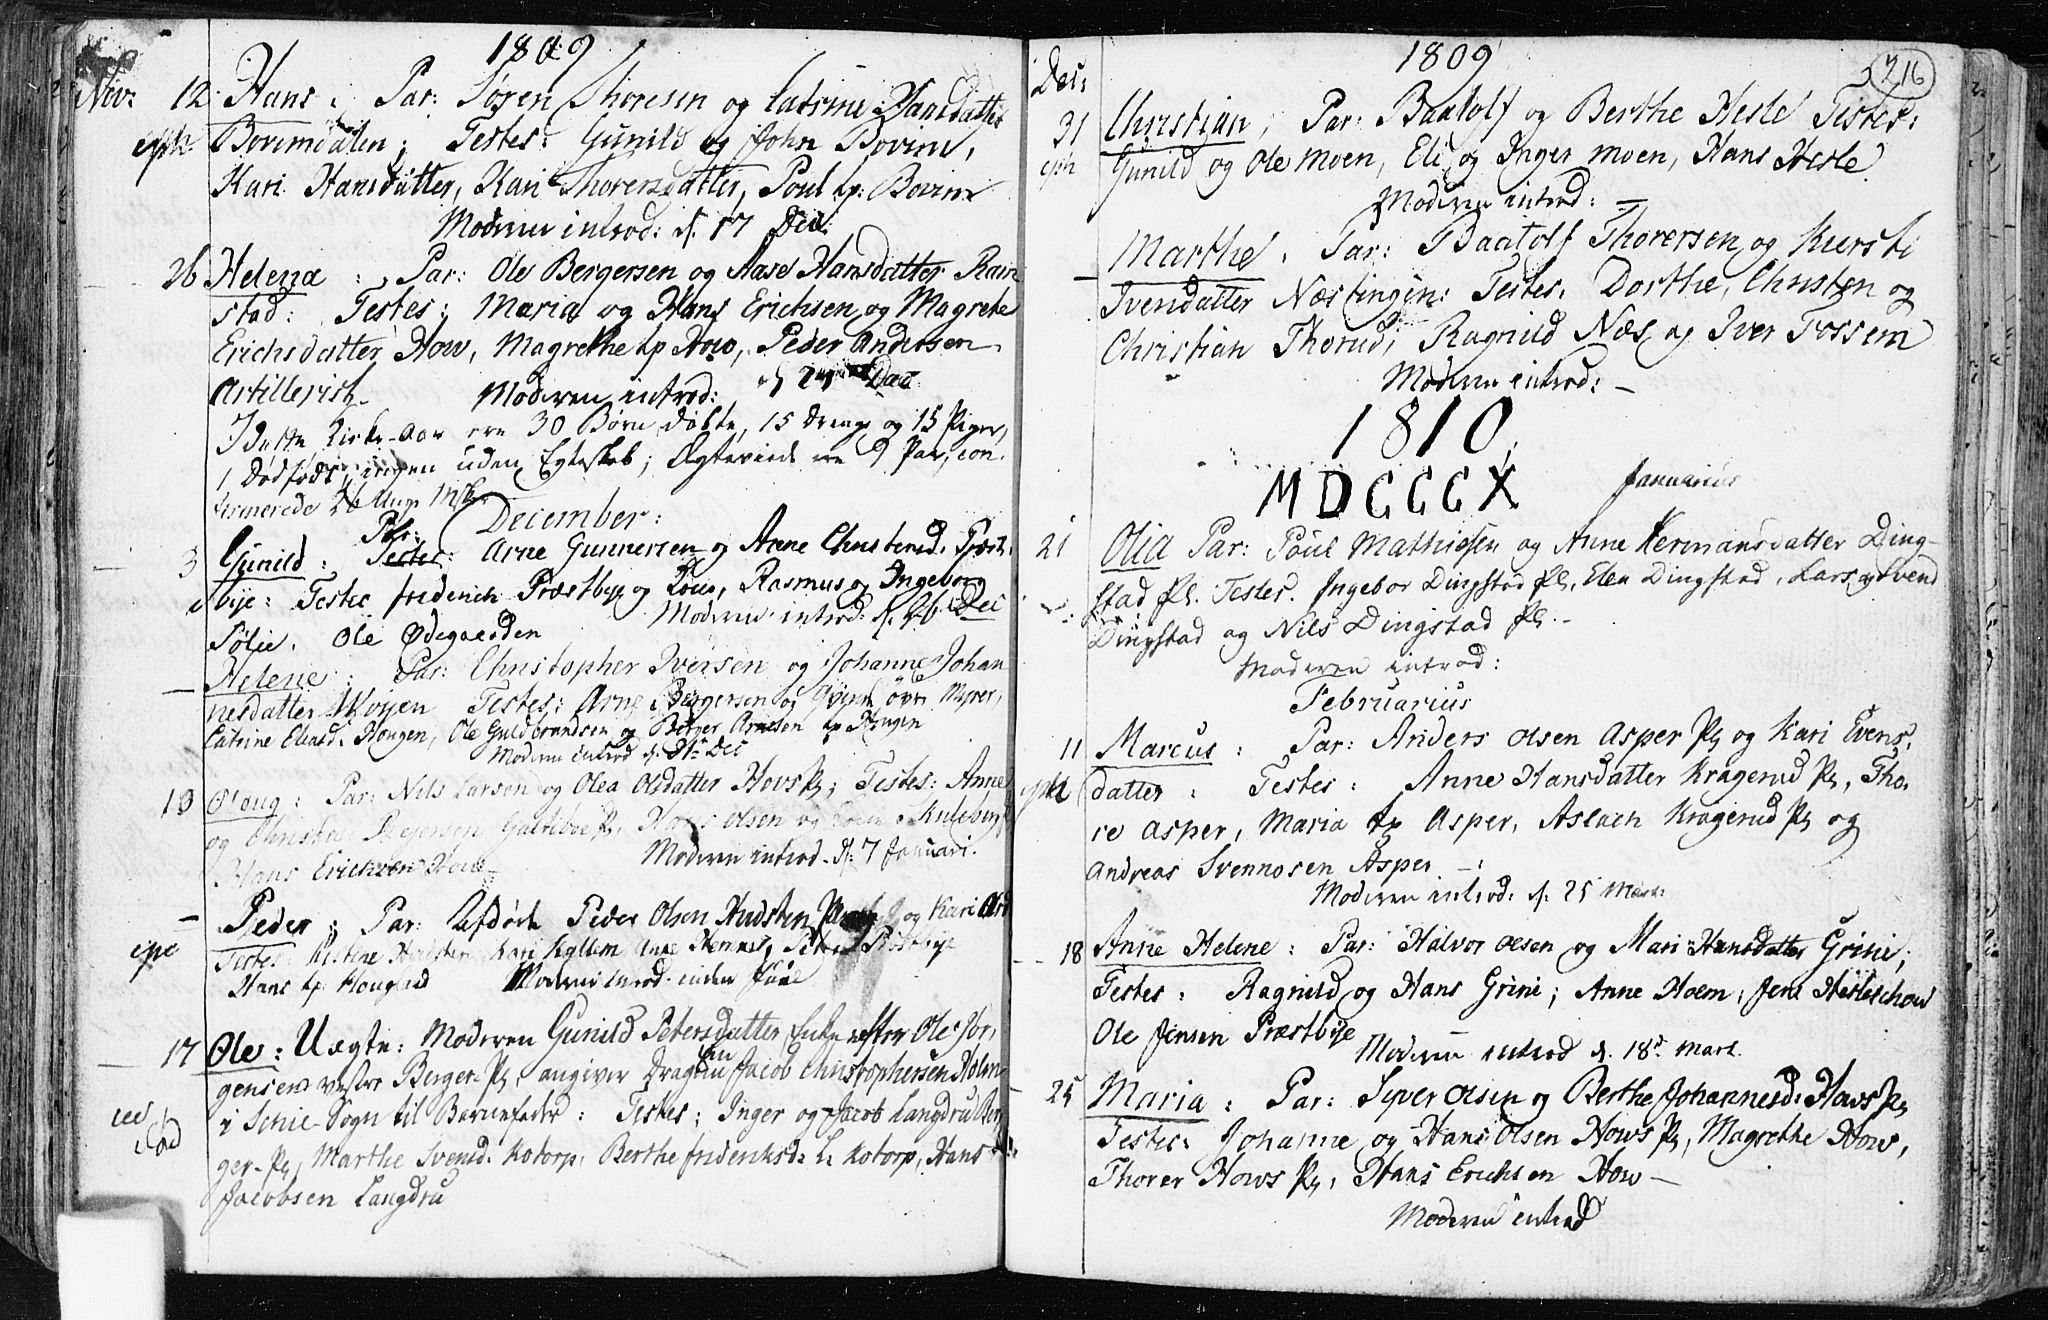 1809
Nov: 12 Hans : Par: Søren Thoresen og Catrine Hansdatter
eph Bovimdalen; Testes: Gunild og John Bovim,
Kari Hansdatter, Kari Thorersdatter, Poul tp: Bovim
Moderen introd: d. 17 Dec:
26 Helena : Par: Ole Bergersen og Aase Hansdatter
stad: Testes: Maria og Hans Erichsen og Magrete
Erichsdatter How, Magrethe tp How, Peder Andersen
Artillerist Moderen introd: Dec
I dette Kirke-Aar ere 30 Børn døbte, 15 Drenge og 15 Piger,
1 Dødfødt, ingen uden Egteskab; Ægteviede ere 9 Par, con-
firmerede 26
December:
Par:
3 Gunild : Testes: Arne Gunnersen og Anne Christensd. Præst-
bye: Testes friderich Præstbye og Rasmus og Ingeborg
Moderen introd: d. 26 Dec
Sølie. Ole Ødegaarden
Helene : Par: Christopher Iversen og Johanne Johan
nesdatter Woyen Testes: Arne Bergersen og
Catrine Elensd. Hougen, Ole Guldbrandsen og Berger Arnesen tp Hougen
Moderen introd d. 31 Dec
10 Olaug : Par: Nils Larsen og Olea Olsdatter Hovs Pl; Testes: Anne
og Christian Olsen og
Moderen introd. d. 7 Januari.
Hans Erichsen How
Peder ; Par: Afdøde Peder Olsen Hudsten og Kari
epi Testes Kari
Hans tp Hougland Moderen introd:
17 Ole : Uægte: Moderen Gunild Petersdatter Enke efter Ole Jør-
gensen vestre Berger Pl, angiver Dragon Jacob Christophersen Holm
i Schie-Sogn til Barnefader : Testes: Inger og Jacob Langdru Ber-
ger-Pl, Marthe Svensd. Kotorp, Berthe frideriksd: Kotorp, Hans
Jacobsen Langdru
1809
216
Dec:
31 Christian, Par: Baatolf og Berthe Hesle Testes:
eph Gunild og Ole Moen, Eli og Inger Moen, Hans Hesle
Moderen introd: —
— Marthe, Par: Baatolf Thorersen og Kersti
Ivensdatter Næstingen: Testes. Dorthe, Christen og
Christian Thorud, Ragnild Næs og Iver Fossem
Moderen introd: —
1810
MDCCCX Januarius
21 Olia Par: Poul Mathiesen og Anne Hermansdatter Ding-
stad Pl. Testes. Ingebor Dingstad Pl, Elen Dingstad, Lars og Svend
Dingstad og Nils Dingstad Pl. -
Moderen introd:
Februarius
11 Marcus : Par: Anders Olsen Asper Pl og Kari Evens-
datter : Testes : Anne Hansdatter Kragerud Pl, Tho-
re Asper, Maria tp Asper, Aslach Kragerud Pl og
Andreas Svennosen Asper —:
Moderen introd: d. 25 Mart:
18 Anne Helene : Par: Halvor Olsen og Mari Hansdatter Grini;
Testes : Ragnild og Hans Grini; Anne Holm,
Ole Jensen Præstbye
Moderen introd d. 18d Mart.
25 Maria : Par: Syver Olsen og Berthe Johannesd: Hows Pl
Testes: Johanne og Hans Olsen Hows Pl, Magrethe How,
Thorer Hows Pl, Hans Erichsen How —
Moderen introd